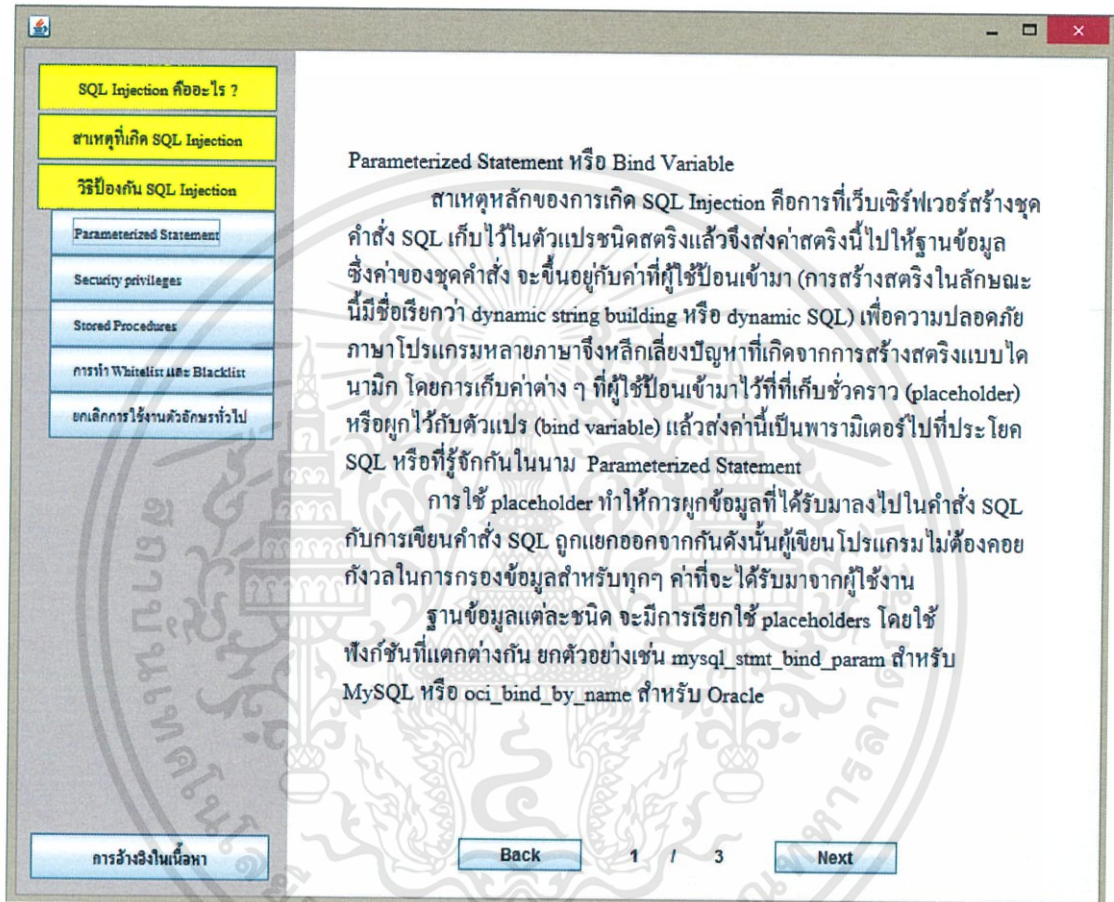 SQL Injection คืออะไร ?
สาเหตุที่เกิด SQL Injection
วิธีป้องกัน SQL Injection
Parameterized Statement
Security privileges
Stored Procedures
การทำ Whitelist และ Blacklist
ยกเลิกการใช้งานตัวอักษรทั่วไป
การอ้างอิงในเนื้อหา
Parameterized Statement หรือ Bind Variable
สาเหตุหลักของการเกิด SQL Injection คือการที่เว็บเซิร์ฟเวอร์สร้างชุด
คำสั่ง SQL เก็บไว้ในตัวแปรชนิดสตริงแล้วจึงส่งค่าสตริงนี้ไปให้ฐานข้อมูล
ซึ่งค่าของชุดคำสั่ง จะขึ้นอยู่กับค่าที่ผู้ใช้ป้อนเข้ามา (การสร้างสตริงในลักษณะ
นี้มีชื่อเรียกว่า dynamic string building หรือ dynamic SQL) เพื่อความปลอดภัย
ภาษาโปรแกรมหลายภาษาจึงหลีกเลี่ยงปัญหาที่เกิดจากการสร้างสตริงแบบได
นามิก โดยการเก็บค่าต่าง ๆ ที่ผู้ใช้ป้อนเข้ามาไว้ที่ที่เก็บชั่วคราว (placeholder)
หรือผูกไว้กับตัวแปร (bind variable) แล้วส่งค่านี้เป็นพารามิเตอร์ไปที่ประโยค
SQL หรือที่รู้จักกันในนาม Parameterized Statement
การใช้ placeholder ทำให้การผูกข้อมูลที่ได้รับมาลงไปในคำสั่ง SQL
กับการเขียนคำสั่ง SQL ถูกแยกออกจากกันดังนั้นผู้เขียนโปรแกรมไม่ต้องคอย
กังวลในการกรองข้อมูลสำหรับทุกๆ ค่าที่จะได้รับมาจากผู้ใช้งาน
ฐานข้อมูลแต่ละชนิด จะมีการเรียกใช้ placeholders โดยใช้
ฟังก์ชันที่แตกต่างกัน ยกตัวอย่างเช่น mysql_stmt_bind_param สำหรับ
MySQL หรือ oci_bind_by_name สำหรับ Oracle
Back 1 / 3 Next